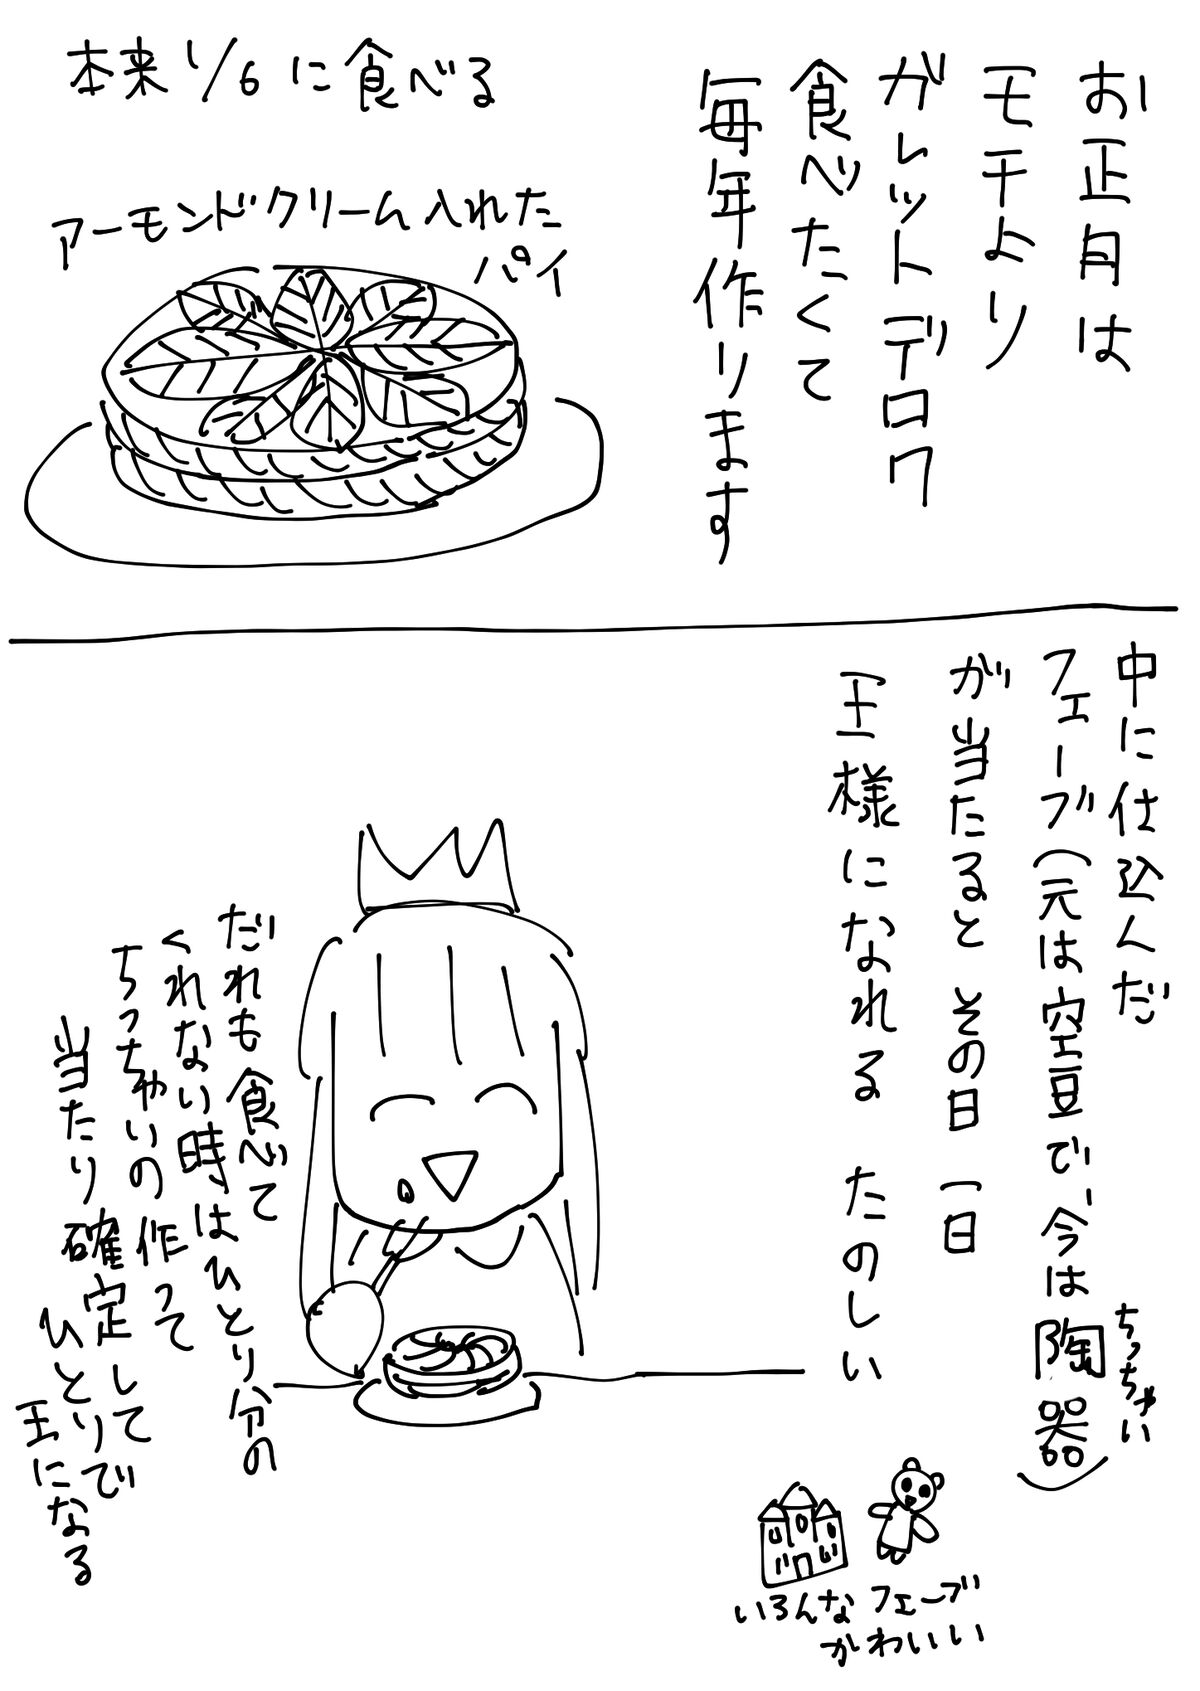 お正月は
モチより
ガレットデロワ
食べたくて
毎年作ります
本来1/6に食べる
アーモンドクリーム入れた
パイ
中に仕込んだ
フェーブ(元は空豆で、今は
ちっちゃい
陶器)
が当たると その日一日
王様になれる たのしい
いろんなフェーブ
かわいい
だれも食べて
くれない時はひとり分の
ちっちゃいの作って
当たり確定して
ひとりで
王になる